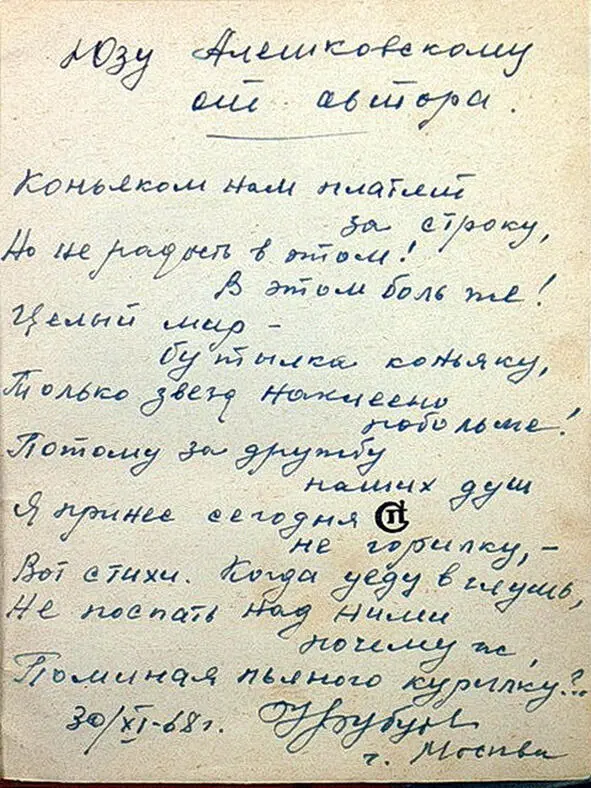 Юзу Алешковскому
от автора.
Коньяком нам платят
за строку,
Но не радость в этом!
В этом боль же!
Целый мир -
бутылка коньяку,
Только звезд наклеено
побольше!
Потому за дружбу
наших душ
Я принес сегодня
СП
не горилку, -
Вот стихи. Когда уеду в глушь,
Не поспать над ними
почему ж,
Поминая пьяного курилку?..
30/XI-68 г.
г. Москва